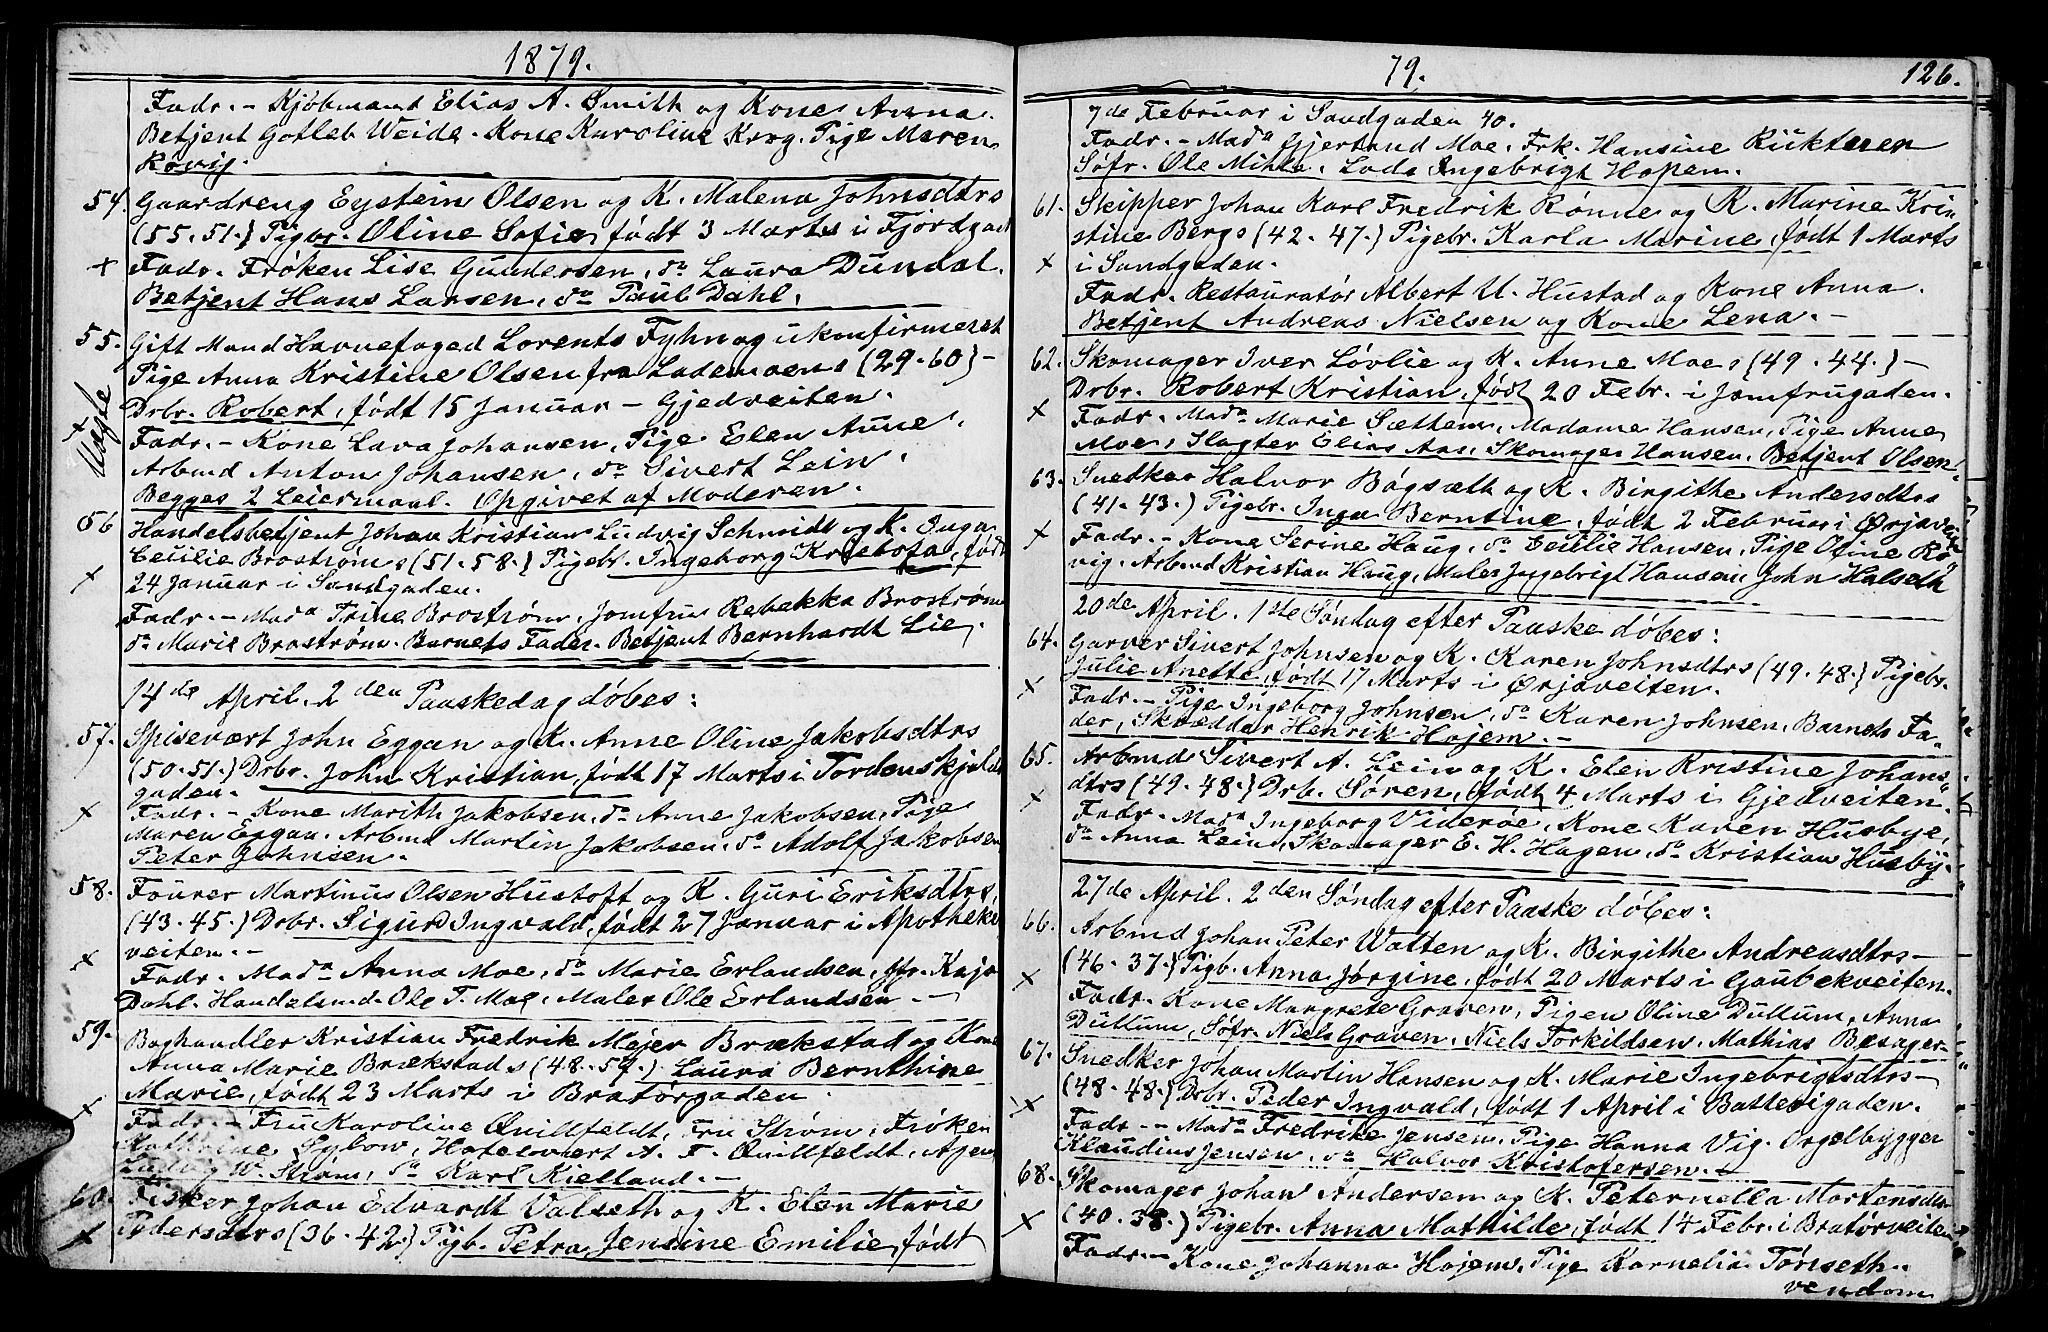 1879.
Fadr. - Kjöbmand Elias A. Smith og Kone Anna.
Betjent Gotleb Weide. Kone Karoline Krog. Pige Maren
Rovig.
54. Gaardreng Eystein Olsen og K. Malena Johnsdtrs
(55. 51.) Pigbr. Oline Sofie, födt 3 Marts i Fjordgad
x Fadr. Fröken Lise Gundersen, do Laura Dundal.
Betjent Hans Larsen, do Paul Dahl.
55. Gift Mand Havnefoged Lorents Fyhn og ukonfirmeret
Pige Anna Kristine Olsen fra Lademoens (29. 60) -
Drbr. Robert, födt 15 Januar - Gjedveiten.
x Uægte Fadr. - Kone Lava Johansen, Pige Elen Aune.
Arbmd Anton Johansen, do Sivert Lein.
Begges 2 Leiermaal. Opgivet af Moderen.
56 Handelsbetjent Johan Kristian Ludvig Schmidt og K. Inga
Cecilie Broströms (51. 58.) Pigebr. Ingeborg Kristofa, födt
x 24 Januar i Sandgaden.
Fadr. - Mada Trine Broström, Jomfru Rebekka Broström
do Marie Broström. Barnets Fader. Betjent Bernhardt Lie.
14de April. 2den Paaskedag döbes:
57. Spisevært John Eggan og K. Anne Oline Jakobsdtrs
(50. 51.) Drbr. John Kristian, födt 17 Marts i Tordenskjolds
gaden.
x Fadr. - Kone Marith Jakobsen, do Anne Jakobsen, Pige
Maren Eggan. Arbmd Martin Jakobsen, do Adolf Jakobsen
Peter Johnsen.
58. Fourer Martinus Olsen Hustoft og K. Guri Eriksdtrs
(43. 45.) Drbr. Sigurd Ingvald, födt 27 Januar i Apotheker
veiten. -
x Fadr. Mada Anna Moe, do Marie Erlandsen, Jfr. Kaja
Dahl. Handelsmd. Ole T. Moe, Maler Ole Erlandsen. -
59. Boghandler Kristian Fredrik Mejer Brækstad og Kone
Anna Marie Brækstads (48. 57.) Laura Bernthine
Marie, födt 23 Marts i Bratörgaden.
x Fadr. - Fru Karoline Quillfeldt, Fru Ström, Fröken
Kathrine Sylow, Hotelvært A. T. Quillfeldt, Agent
Ludvig W. Ström, do Karl Kielland. -
60. Fisker Johan Edvardt Valseth og K. Elen Marie
x Pedersdtrs (36. 42) Pigb. Petra Jensine Emilie, födt
79.
126.
7de Februar i Sandgaden 40.
Fadr. - Mada Gjertrud Moe. Frk. Hansine Rükteren
Söfr. Ole Mihle. Lods Ingebrigt Hopem.
61. Skipper Johan Karl Fredrik Rönne og K. Marine Kri-
stine Bergs (42. 47.) Pigebr. Karla Marine, födt 1 Marts
x i Sandgaden.
Fadr. Restauratör Albert U. Hustad og Kone Anna.
Betjent Andreas Nielsen og Kone Lena. -
62. Skomager Iver Lövlie og K. Anne Moes (49. 44.) -
Drbr. Robert Kristian, födt 20 Febr. i Jomfrugaden.
x Fadr. Mada Marie Sættem, Madame Hansen, Pige Anne
Moe, Slagter Elias Aas, Skomager Hansen, Betjent Olsen.
63. Snedker Halvor Bögsæth og K. Birgithe Andersdtrs
(41. 43.) Pigebr. Inga Berntine, födt 2 Februar i Ørjaveiten
x Fadr. - Kone Serine Haug, do Cecilie Hansen, Pige Oline Rö
vig. Arbmd Kristian Haug, Maler Ingebrigt Hansen, John Halseth
20de April. 1ste Söndag efter Paaske döbes:
64. Garver Sivert Johnsen og K. Karen Johnsdtrs (49. 48.) Pigebr.
Julie Anette, födt 17 Marts i Ørjaveiten.
x Fadr. - Pige Ingeborg Johnsen, do Karen Johnsen, Barnets Fa-
der, Skrædder Henrik Hojem. -
65. Arbmd Sivert A. Lein og K. Elen Kristine Johans-
dtrs (49. 48.) Drb. Sören, födt 4 Marts i Gjedveiten.
x Fadr. Mada Ingeborg Videröe, Kone Karen Husbye,
do Anna Lein, Skomager E. H. Hagen, do Kristian Husby.
27de April. 2den Söndag efter Paaske döbes:
66. Arbmd Johan Peter Watten og K. Birgithe Andreasdtrs -
(46. 37.) Pigb. Anna Jörgine, födt 20 Marts i Gaubekveiten.
x Fadr. Kone Margrete Graven, Pigen Oline Dullum, Anna
Dullum, Söfr. Niels Graven, Niels Torkildsen, Mathias Besager-
67. Snedker Johan Martin Hansen og K. Marie Ingebrigtsdtrs -
(48. 48.) Drbr. Peder Ingvald, födt 1 April i Batterigaden.
x Fadr. - Mada Fredrike Jensen, Pige Hanna Vig. Orgelbygger
Klaudius Jensen, do Halvor Kristofersen. -
68. Skomager Johan Andersen og K. Peternella Mortensdtr
(40. 38.) Pigebr. Anna Mathilde, födt 14 Febr. i Bratörveiten
x Fadr. - Kone Johanna Hojem, Pige Kornelia Tönseth.
vendom